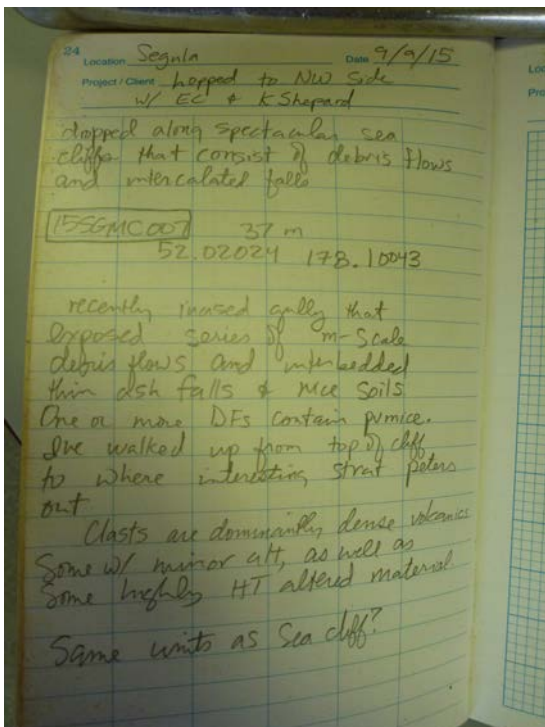 24 Location Segula Date 9/9/15
Project / Client hopped to NW Side
w/ EC & K Shepard
dropped along spectacular sea
cliffs that consist of debris flows
and intercalated falls
15SGMC007 37 m
52.02024 178.10043
recently incised gully that
exposed series of m-scale
debris flows and interbedded
thin ash falls & nice soils
One or more DFs contain pumice.
I've walked up from top of cliff
to where interesting strat peters
out
Clasts are dominantly dense volcanics
Some w/ minor alt, as well as
Some highly HT altered material
Same units as sea cliff?
Loc
Pro